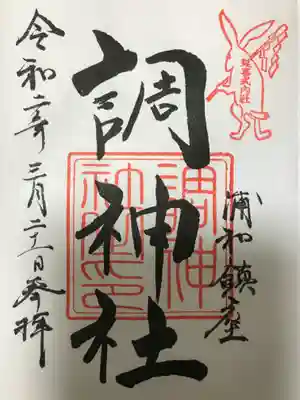 延喜式内社
浦和鎮座
調神社
令和二年三月二十一日奉拝